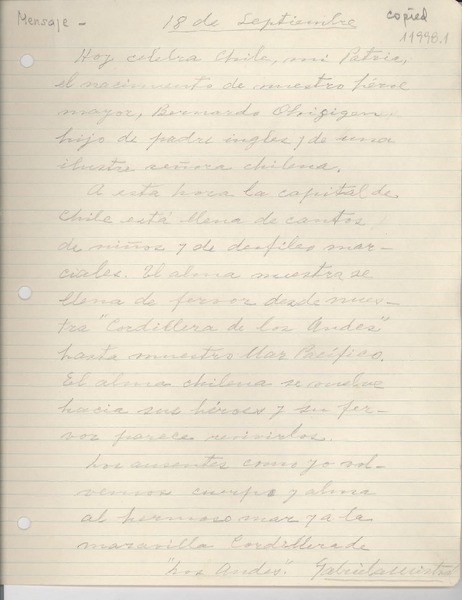 Mensaje -
18 de Septiembre
copied
11998.1
Hoy celebra Chile, mi Patria,
el nacimiento de nuestro héroe
mayor, Bernardo
hijo de padre ingles y de una
ilustre señora chilena.
A esta hora la capital de
Chile está llena de cantos
de niños y de desfiles mar-
ciales. El alma nuestra se
llena de fervor desde nues-
tra "Cordillera de los Andes"
hasta nuestro Mar Pacífico.
El alma chilena se vuelve
hacia sus héroes y su fer-
vor parece revivirlos.
Los ausentes como yo vol-
vemos cuerpo y alma
al hermoso mar y a la
maravilla Cordillera de
"Los Andes". Gabriela Mistral